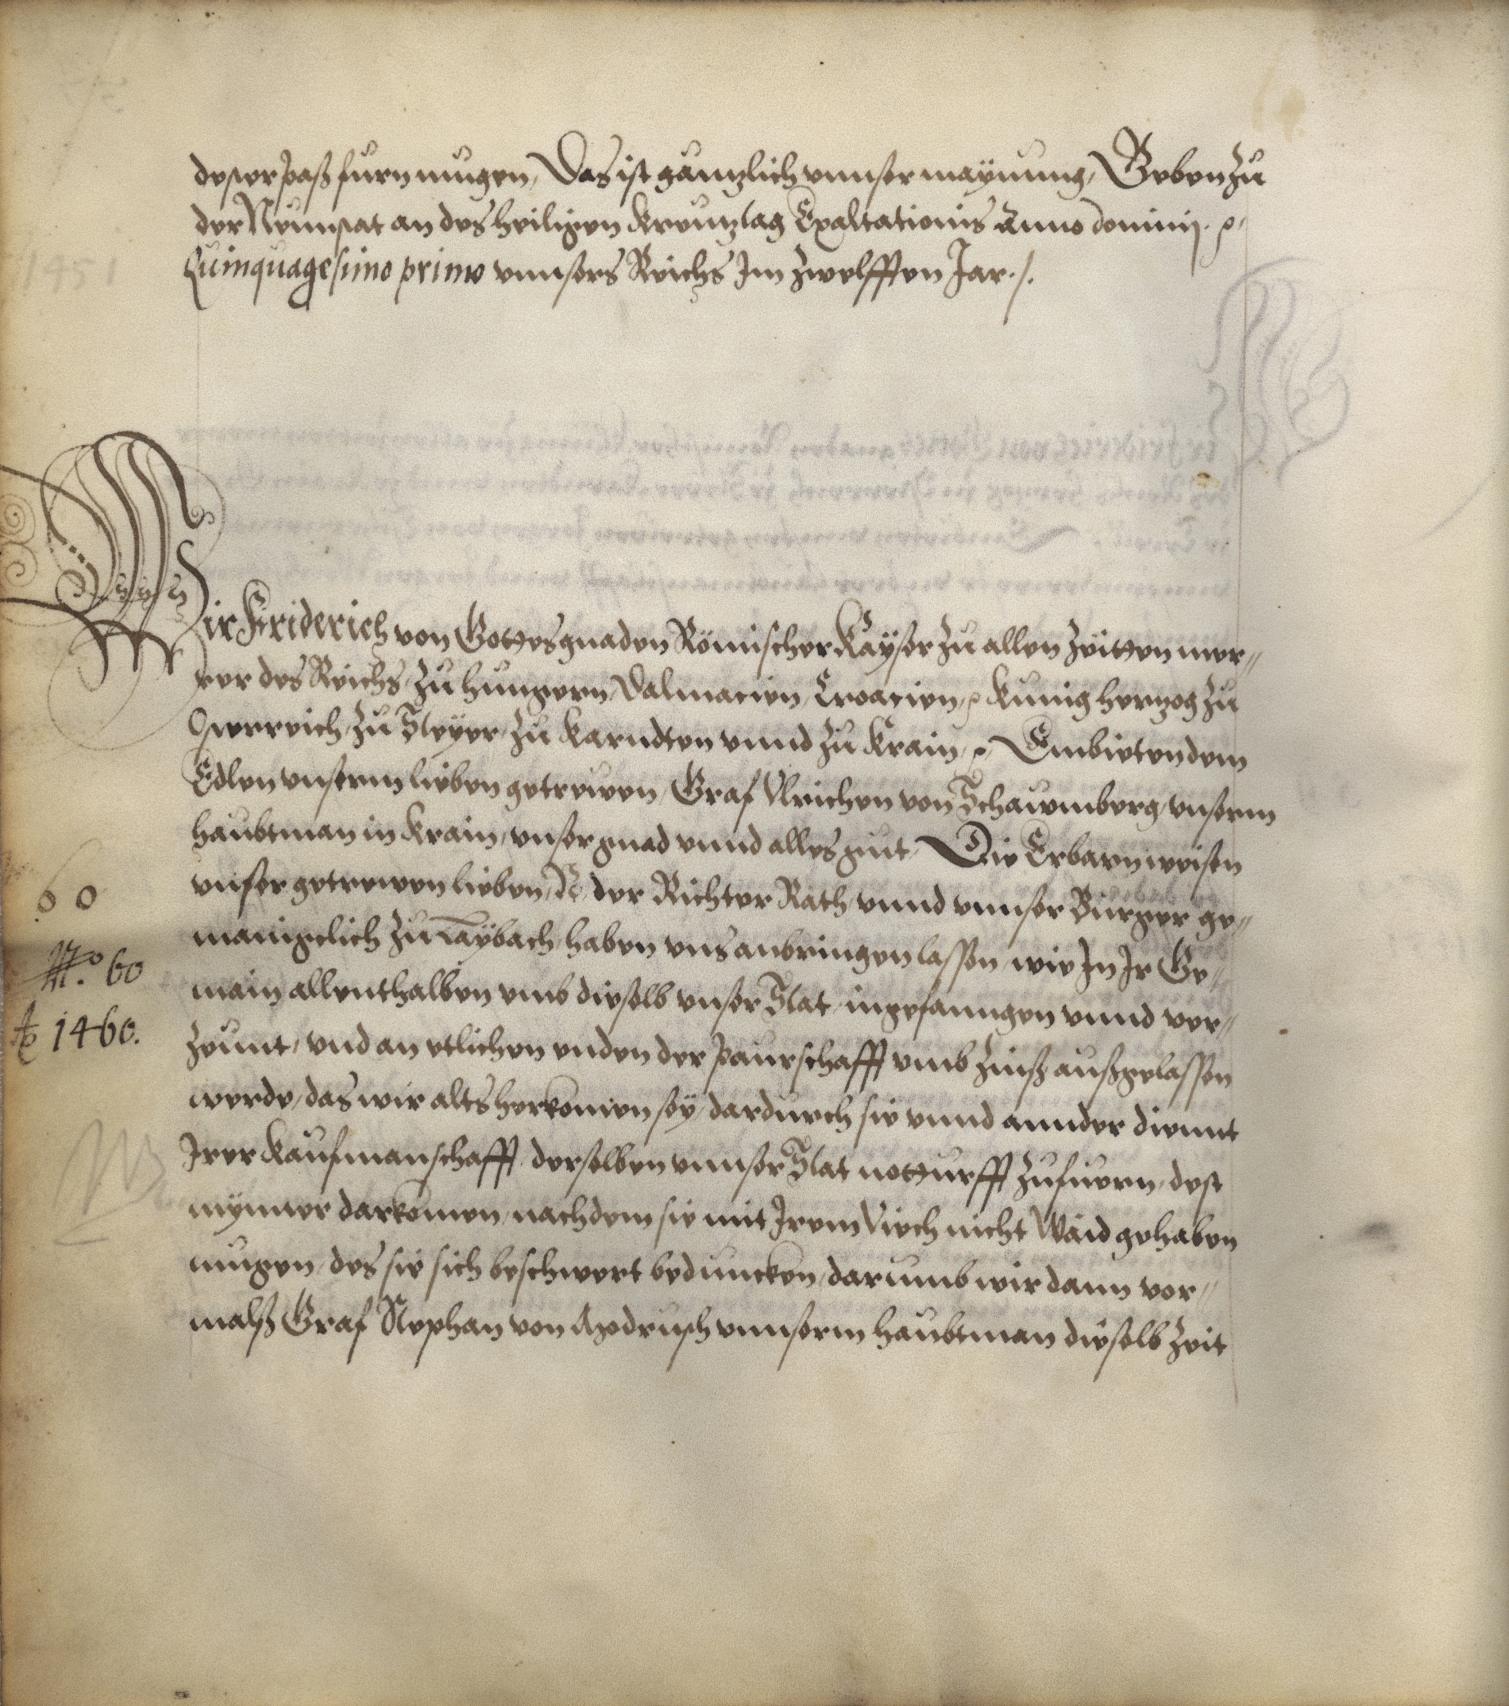 dester paß furn mugen, Das ist gäntzlich unnser maynung, Geben zu
der Neunstat an des heiligen Kreutztag Exaltationis Anno domini. ꝛc
Quinquagesimo primo unnsers Reichs Im Zwelfften Jar./.
1451
Wir Friderich von Gottes gnaden Römischer Kayser zu allen Zeitten mer⸗
rer des Reichs, zu Hungern, Dalmacien, Croacien, ꝛc Kunig hertzog zu
Osterreich, zu Steyer, zu Karndten unnd zu Krain, ꝛc Embieten dem
Edlen unserm lieben getrewen, Graf Ulrichen von Schaumberg, unserm
haubtman in Krain, unser gnad unnd alles gut, Die Erbarn weisen
unser getrewen lieben, N. der Richter Rath, unnd unnser Burger ge⸗
mainiglich zu Laybach, haben uns anbringen lassen, wie In Ir Ge⸗
main allenthalben umb dieselb unser Stat, ingefanngen unnd ver⸗
zeunt, und an etlichen enden der paurschafft umb Zinß außgelassen
werde, das wir alts herkomen sey, dardurch sie unnd annder diennt
Irer Kaufmanschafft, derselben unnser Stat notturfft zufuern, dest
mynner darkomen, nachdem sie mit Irem Viech nicht Waid gehaben
mugen, des sie sich beschwert beduncken, darumb wir dann vor⸗
malß Graf Stephan von Modrusch unnserm haubtman dieselb Zeit
60
No. 60
Ao 1460.